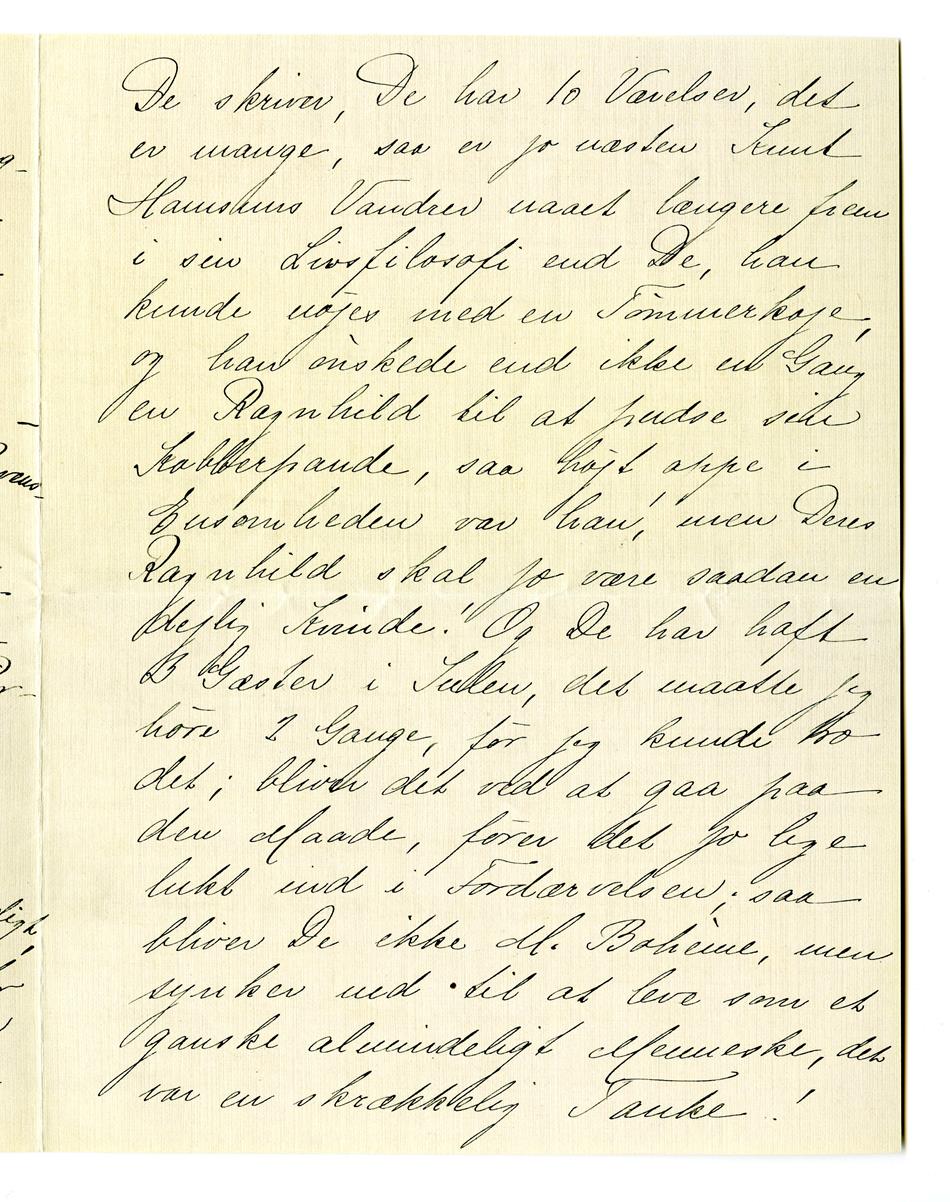 De skriver, De har 10 Værelser, det
er mange, saa er jo næsten Knut
Hamsuns Vandrer naaet længere frem
i sin Livsfilosofi end De, han
kunde nøjes med en Tömmerkoje,
og han önskede end ikke en Gang
en Ragnhild til at pudse sin
Kobberpande, saa højt oppe i
Ensomheden var han, men Deres
Ragnhild skal jo være saadan en
dejlig Kvinde! Og De har haft
3 Gæster i Julen, det maatte jeg
höre 2 Gange, för jeg kunde tro
det; bliver det ved at gaa paa
den Maade, förer det jo lige
lukt ind i Fordærvelsen; saa
bliver De ikke M. Bohème, men
synker ned til at leve som et
ganske almindeligt Menneske, det
var en skrækkelig Tanke!